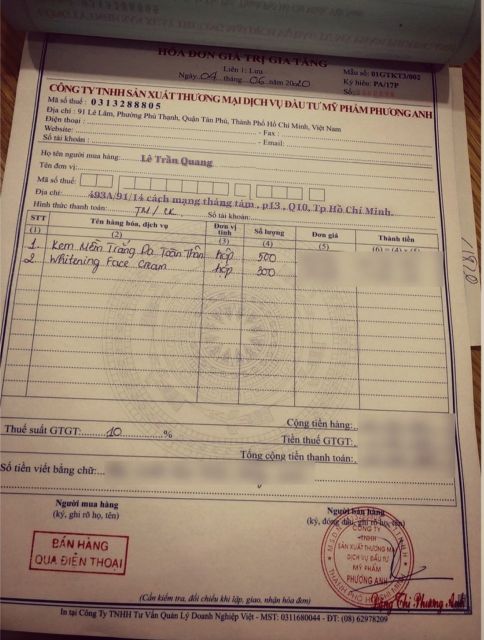 HÓA ĐƠN GIÁ TRỊ GIA TĂNG
Liên 1: Lưu
Ngày 04 tháng 06 năm 2020
Mẫu số: 01GTKT3/002
Ký hiệu: PA/17P
Số:
CÔNG TY TNHH SẢN XUẤT THƯƠNG MẠI DỊCH VỤ ĐẦU TƯ MỸ PHẨM PHƯƠNG ANH
Mã số thuế : 0313288805
Địa chỉ : 91 Lê Lâm, Phường Phú Thạnh, Quận Tân Phú, Thành Phố Hồ Chí Minh, Việt Nam
Điện thoại : - Fax :
Website: - Email:
Số tài khoản :
Họ tên người mua hàng: Lê Trần Quang
Tên đơn vị:
Mã số thuế:
Địa chỉ: 493A/91/14 cách mạng tháng tám, p13, Q10, Tp Hồ Chí Minh.
Hình thức thanh toán: TM / CK Số tài khoản:
STT Tên hàng hóa, dịch vụ Đơn vị tính Số lượng Đơn giá Thành tiền
(1) (2) (3) (4) (5) (6) = (4) x (5)
1. Kem Mềm Trắng Da Toàn Thân hộp 500
2 Whitening Face Cream hộp 300
Cộng tiền hàng:
Thuế suất GTGT: 10 % Tiền thuế GTGT:
Tổng cộng tiền thanh toán:
Số tiền viết bằng chữ:
Người mua hàng Người bán hàng
(ký, ghi rõ họ, tên) (ký, đóng dấu, ghi rõ họ, tên)
BÁN HÀNG
QUA ĐIỆN THOẠI
CÔNG TY
TNHH
SẢN XUẤT THƯƠNG MẠI
DỊCH VỤ ĐẦU TƯ
MỸ PHẨM
PHƯƠNG ANH
Đặng Thị Phương Anh
(Cần kiểm tra, đối chiếu khi lập, giao, nhận hóa đơn)
In tại Công Ty TNHH Tư Vấn Quản Lý Doanh Nghiệp Việt - MST: 0311680044 - ĐT: (08) 62978209